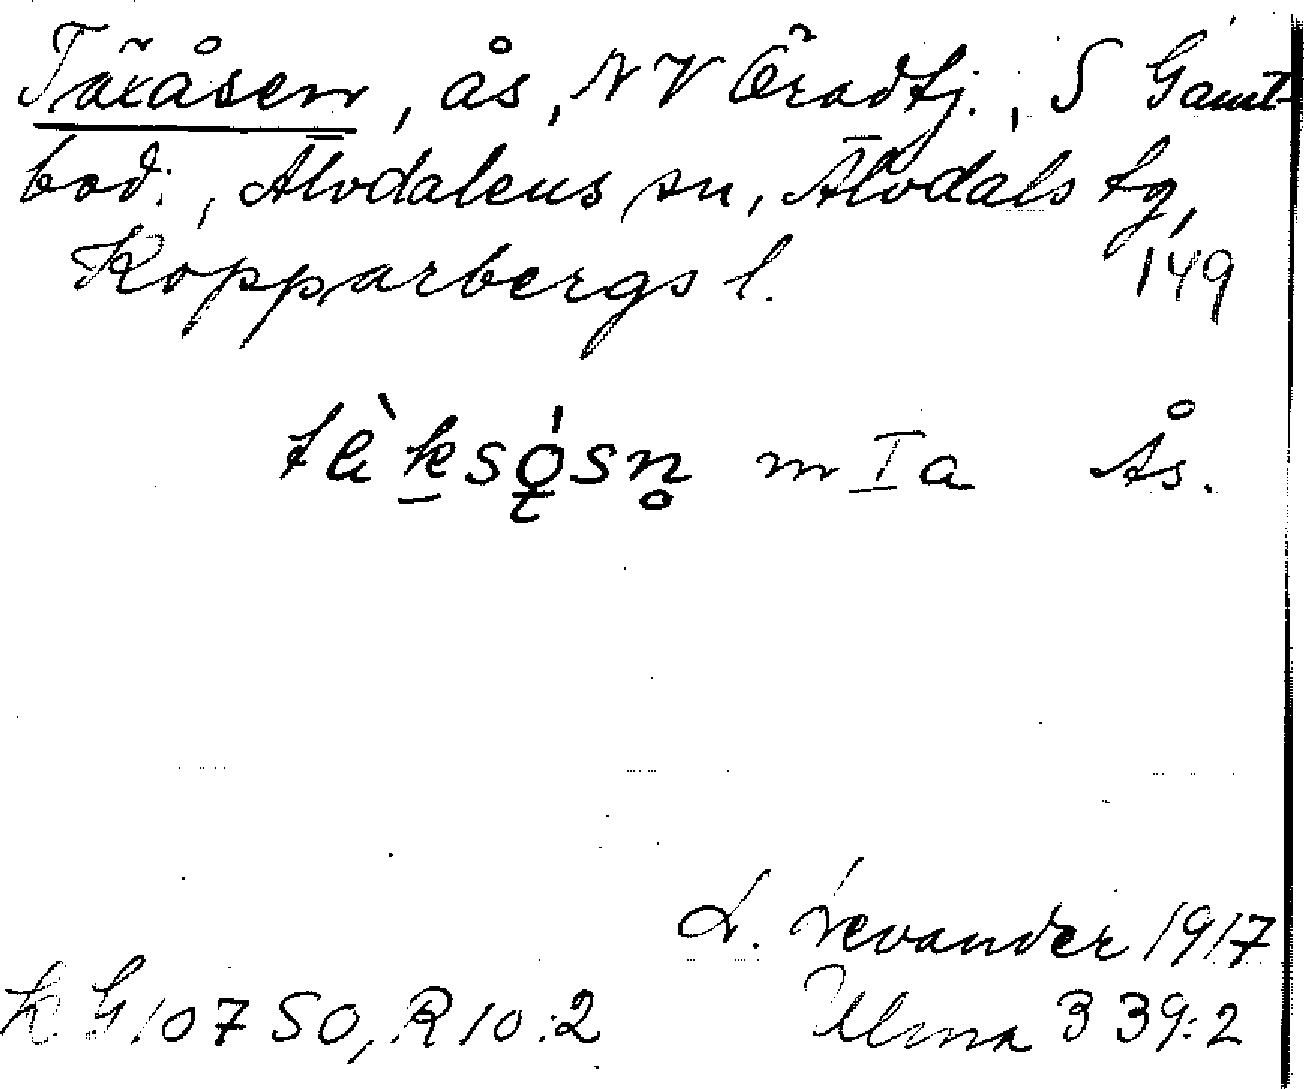 Täxåsen, ås, NV Öradtj., S Gamt-
bod., Älvdalens sn, Älvdals tg,
Kopparbergs l. 149
tèksǫ́sn̥ m Ia Ås.
L. Levander 1917
K G 10750, R 10:2 Ulma 339:2